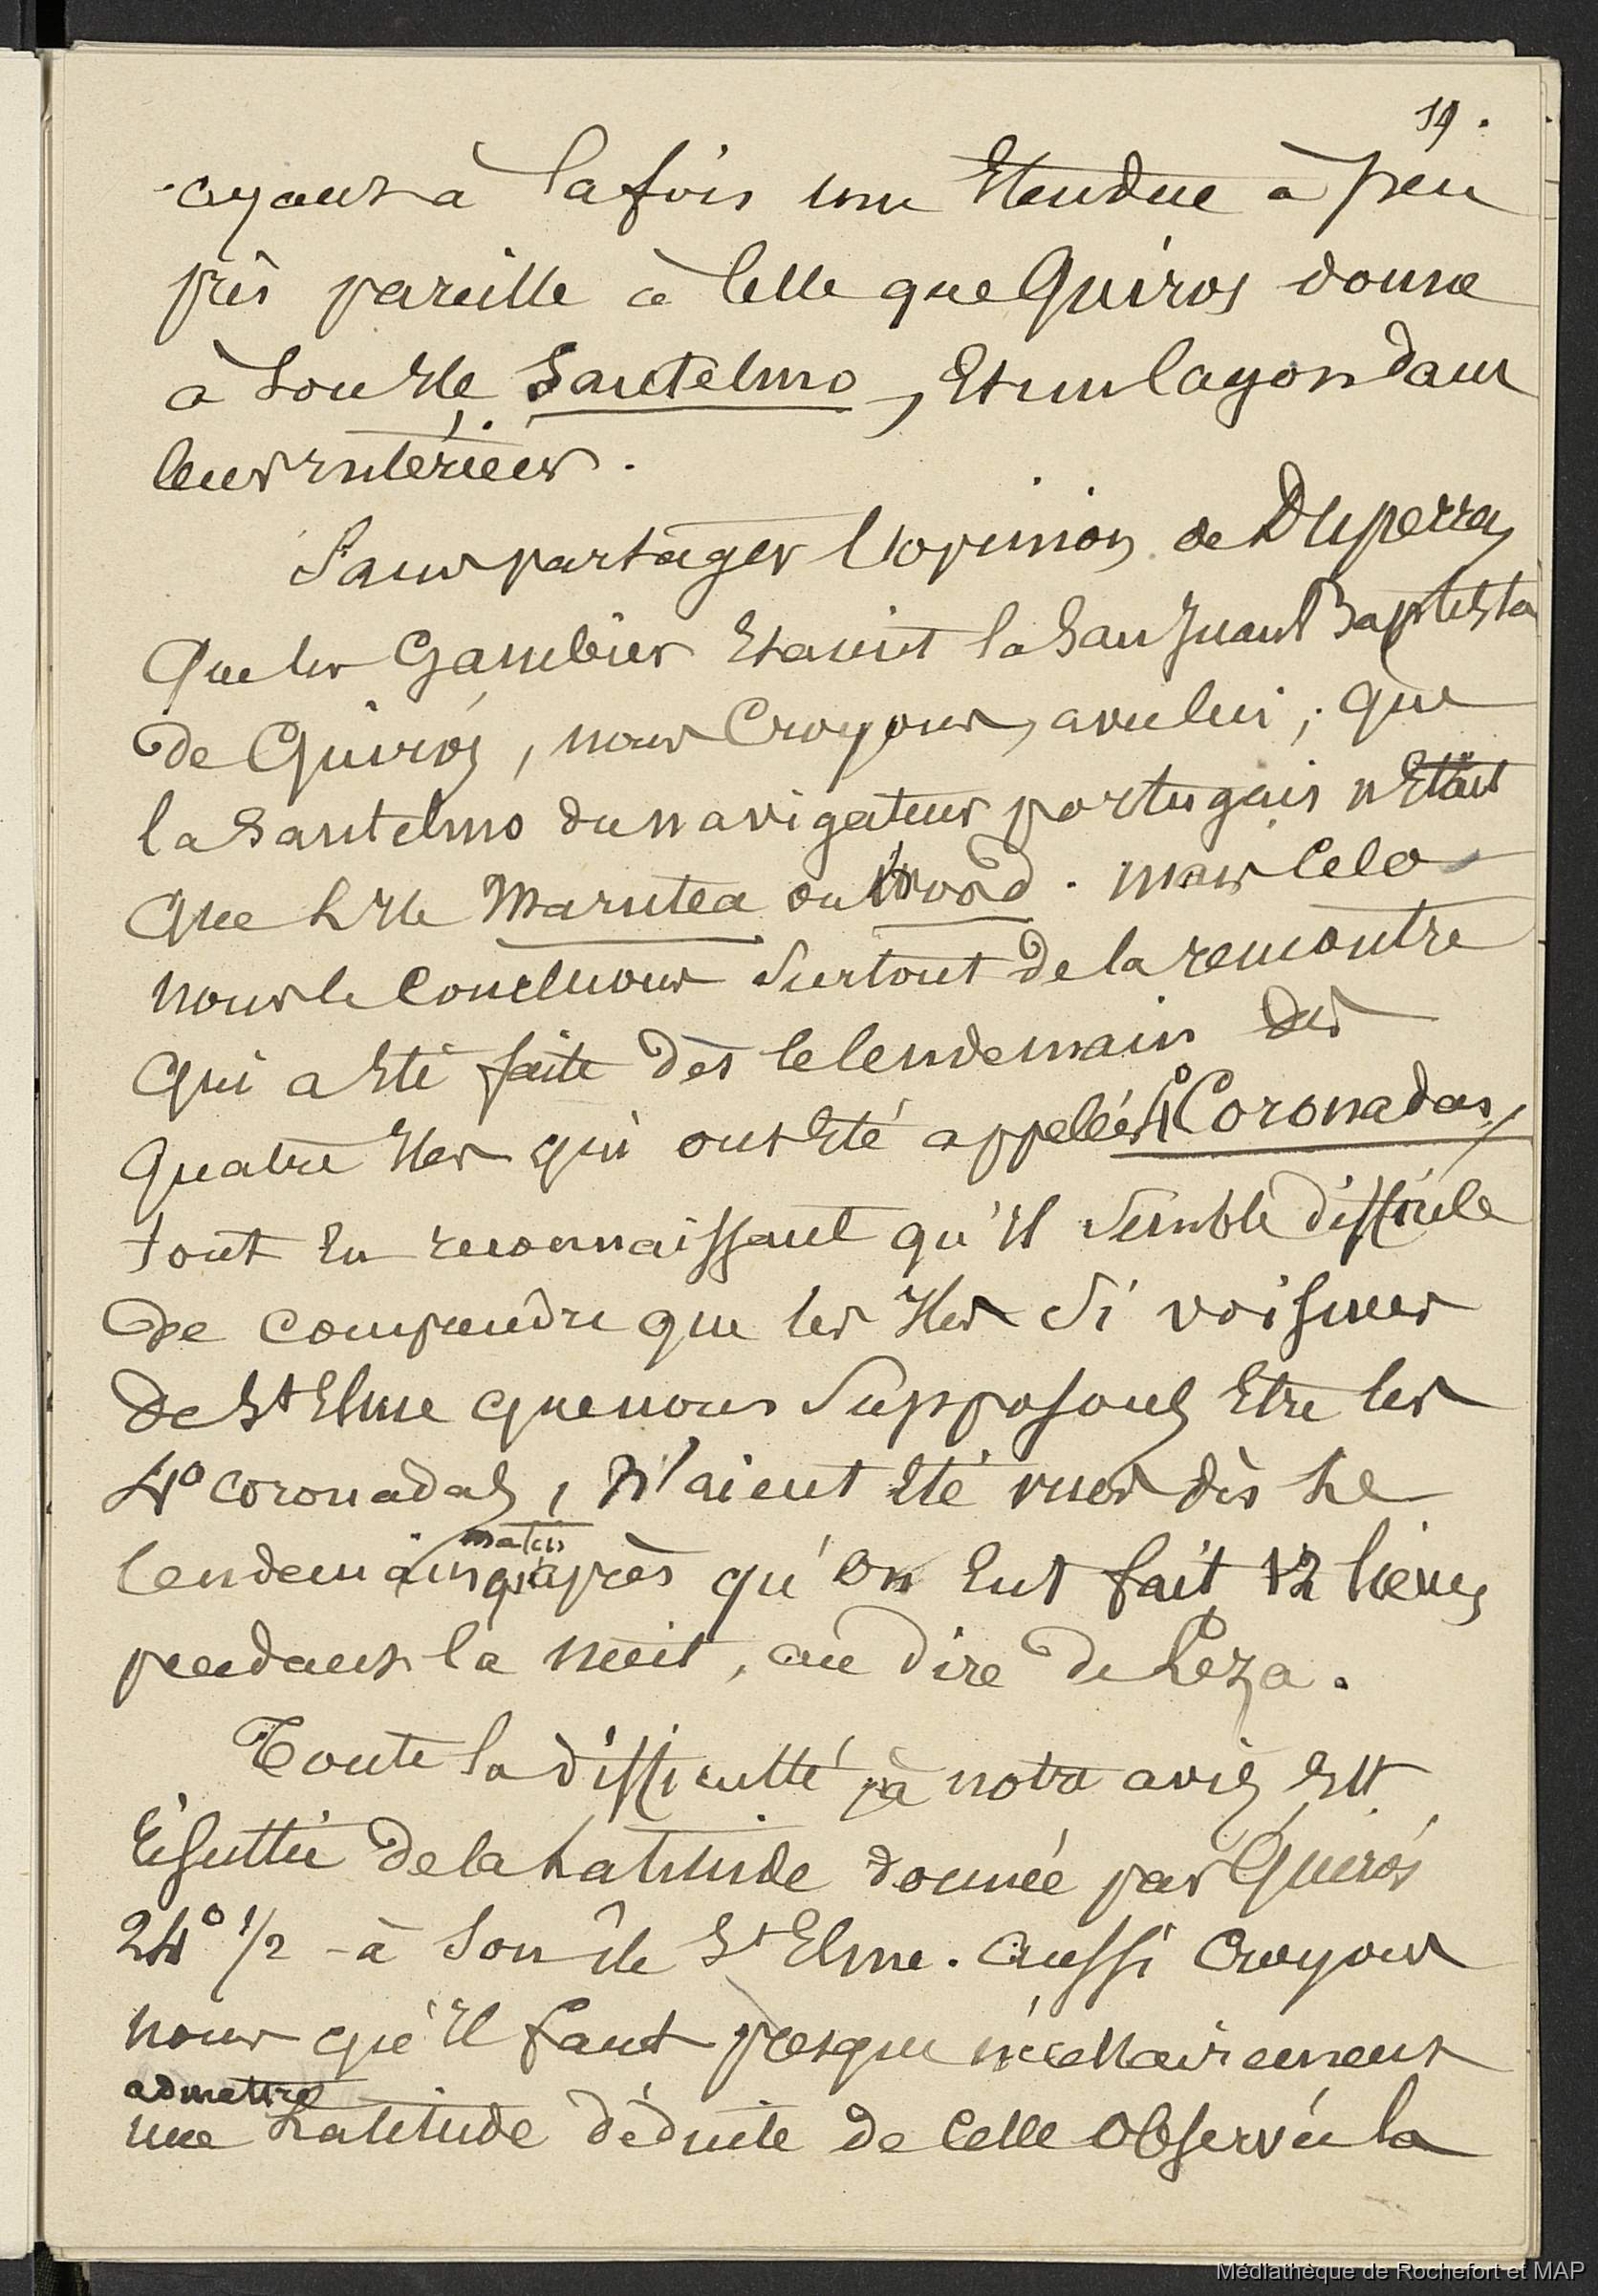 19.
ayant à la fois une Etendue à peu
près pareille à Celle que Quiros donne
à son Ile Santelmo, Et un lagon dans
leur Intérieur.
Sans partager l'opinion de Duperrey
Que les Gambier Etaient la San Juan Baptista
de Quiros, nous Croyons, avec lui, que
la Santelmo du navigateur portugais n'Etait
que L'Ile Marutea ou Hood. mais Cela
nous le Concluons Surtout de la rencontre
Qui a Eté faite dès le lendemain des
Quatre Iles qui ont Eté appelées 4° Coronadas,
tout En reconnaissant qu'Il Semble difficile
de comprendre que les Iles Si voisines
de St Elme que nous Supposons Etre les
4° coronadas, N'aient Eté vues dès Le
lendemain matin qu'après qu'On Eut fait 12 lieues
pendant la Nuit, au dire de Leza.
Toute la difficulté, à notre avis Est
Résultée de la Latitude donnée par Quiros
24° 1/2 - à Son île St Elme. Aussi Croyons
nous qu'Il faut presque nécessairement
admettre
une Latitude déduite de Celle Observée la
Médiathèque de Rochefort et MAP